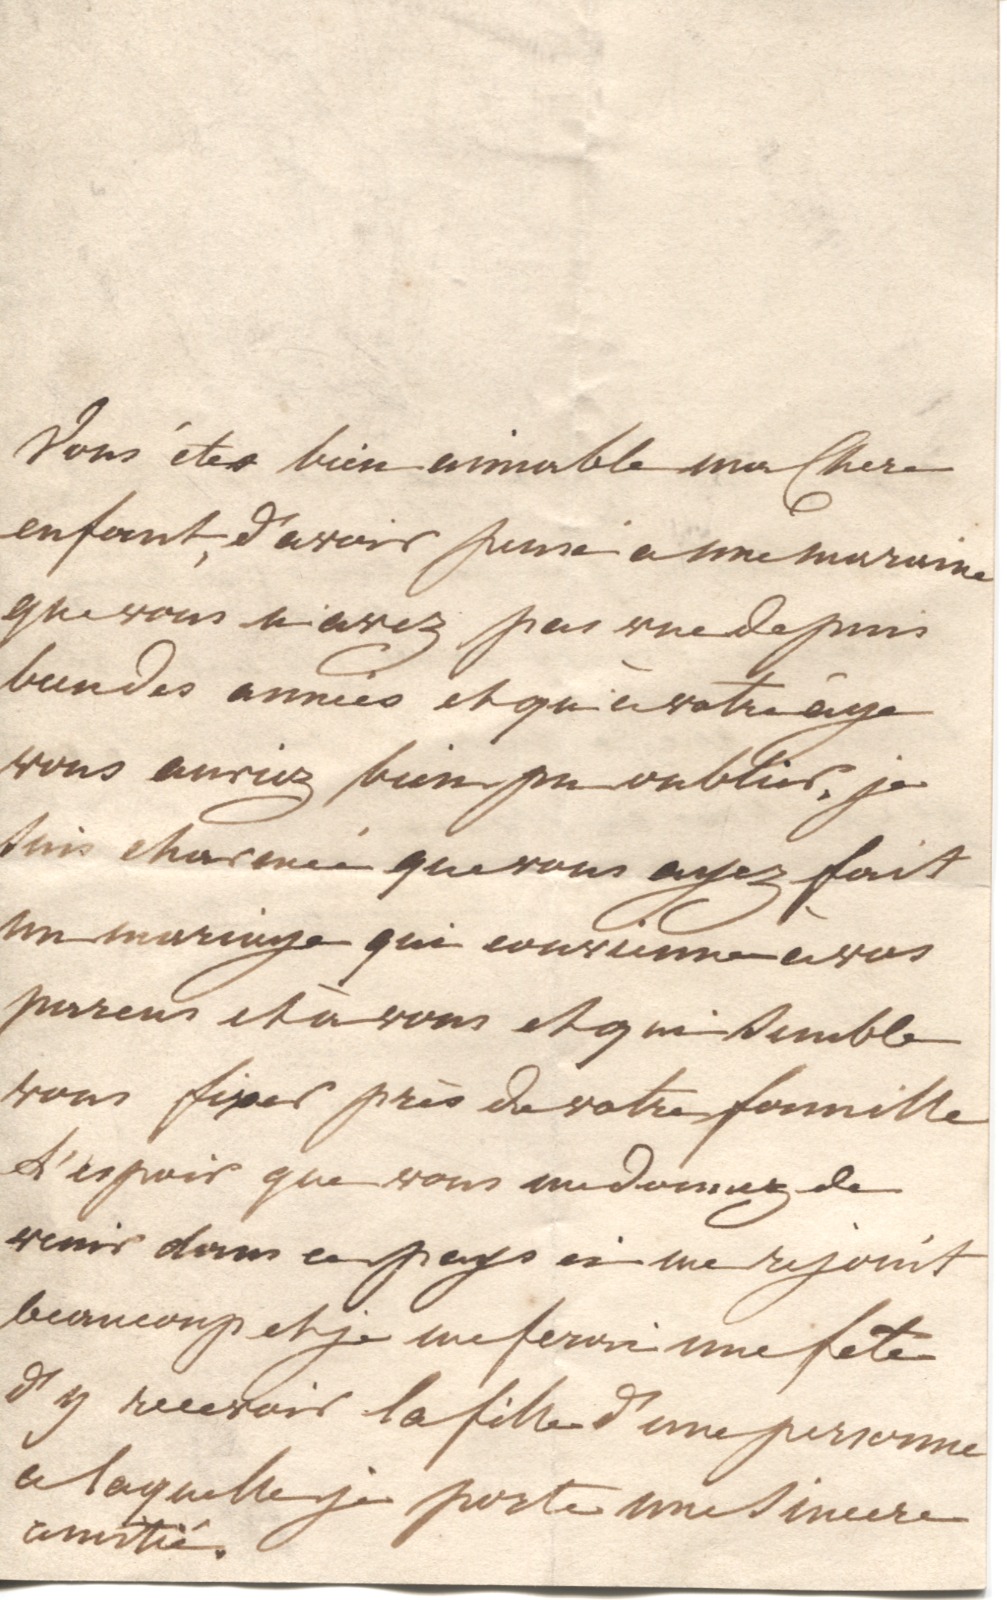 Vous étes bien aimable ma Chere
enfant, d'avoir pensé a une maraine
que vous n'avez pas vue depuis
bien des années et qu'à votre âge
vous auriez bien pu oublier. je
suis charmée que vous ayez fait
un mariage qui convienne à vos
parens et à vous et qui semble
vous fixer près de votre famille
l'espoir que vous me donnez de
venir dans ce pays ci me rejouit
beaucoup et je me ferai une fete
d'y recevoir la fille d'une personne
a laquelle je porte une sincere
amitié.